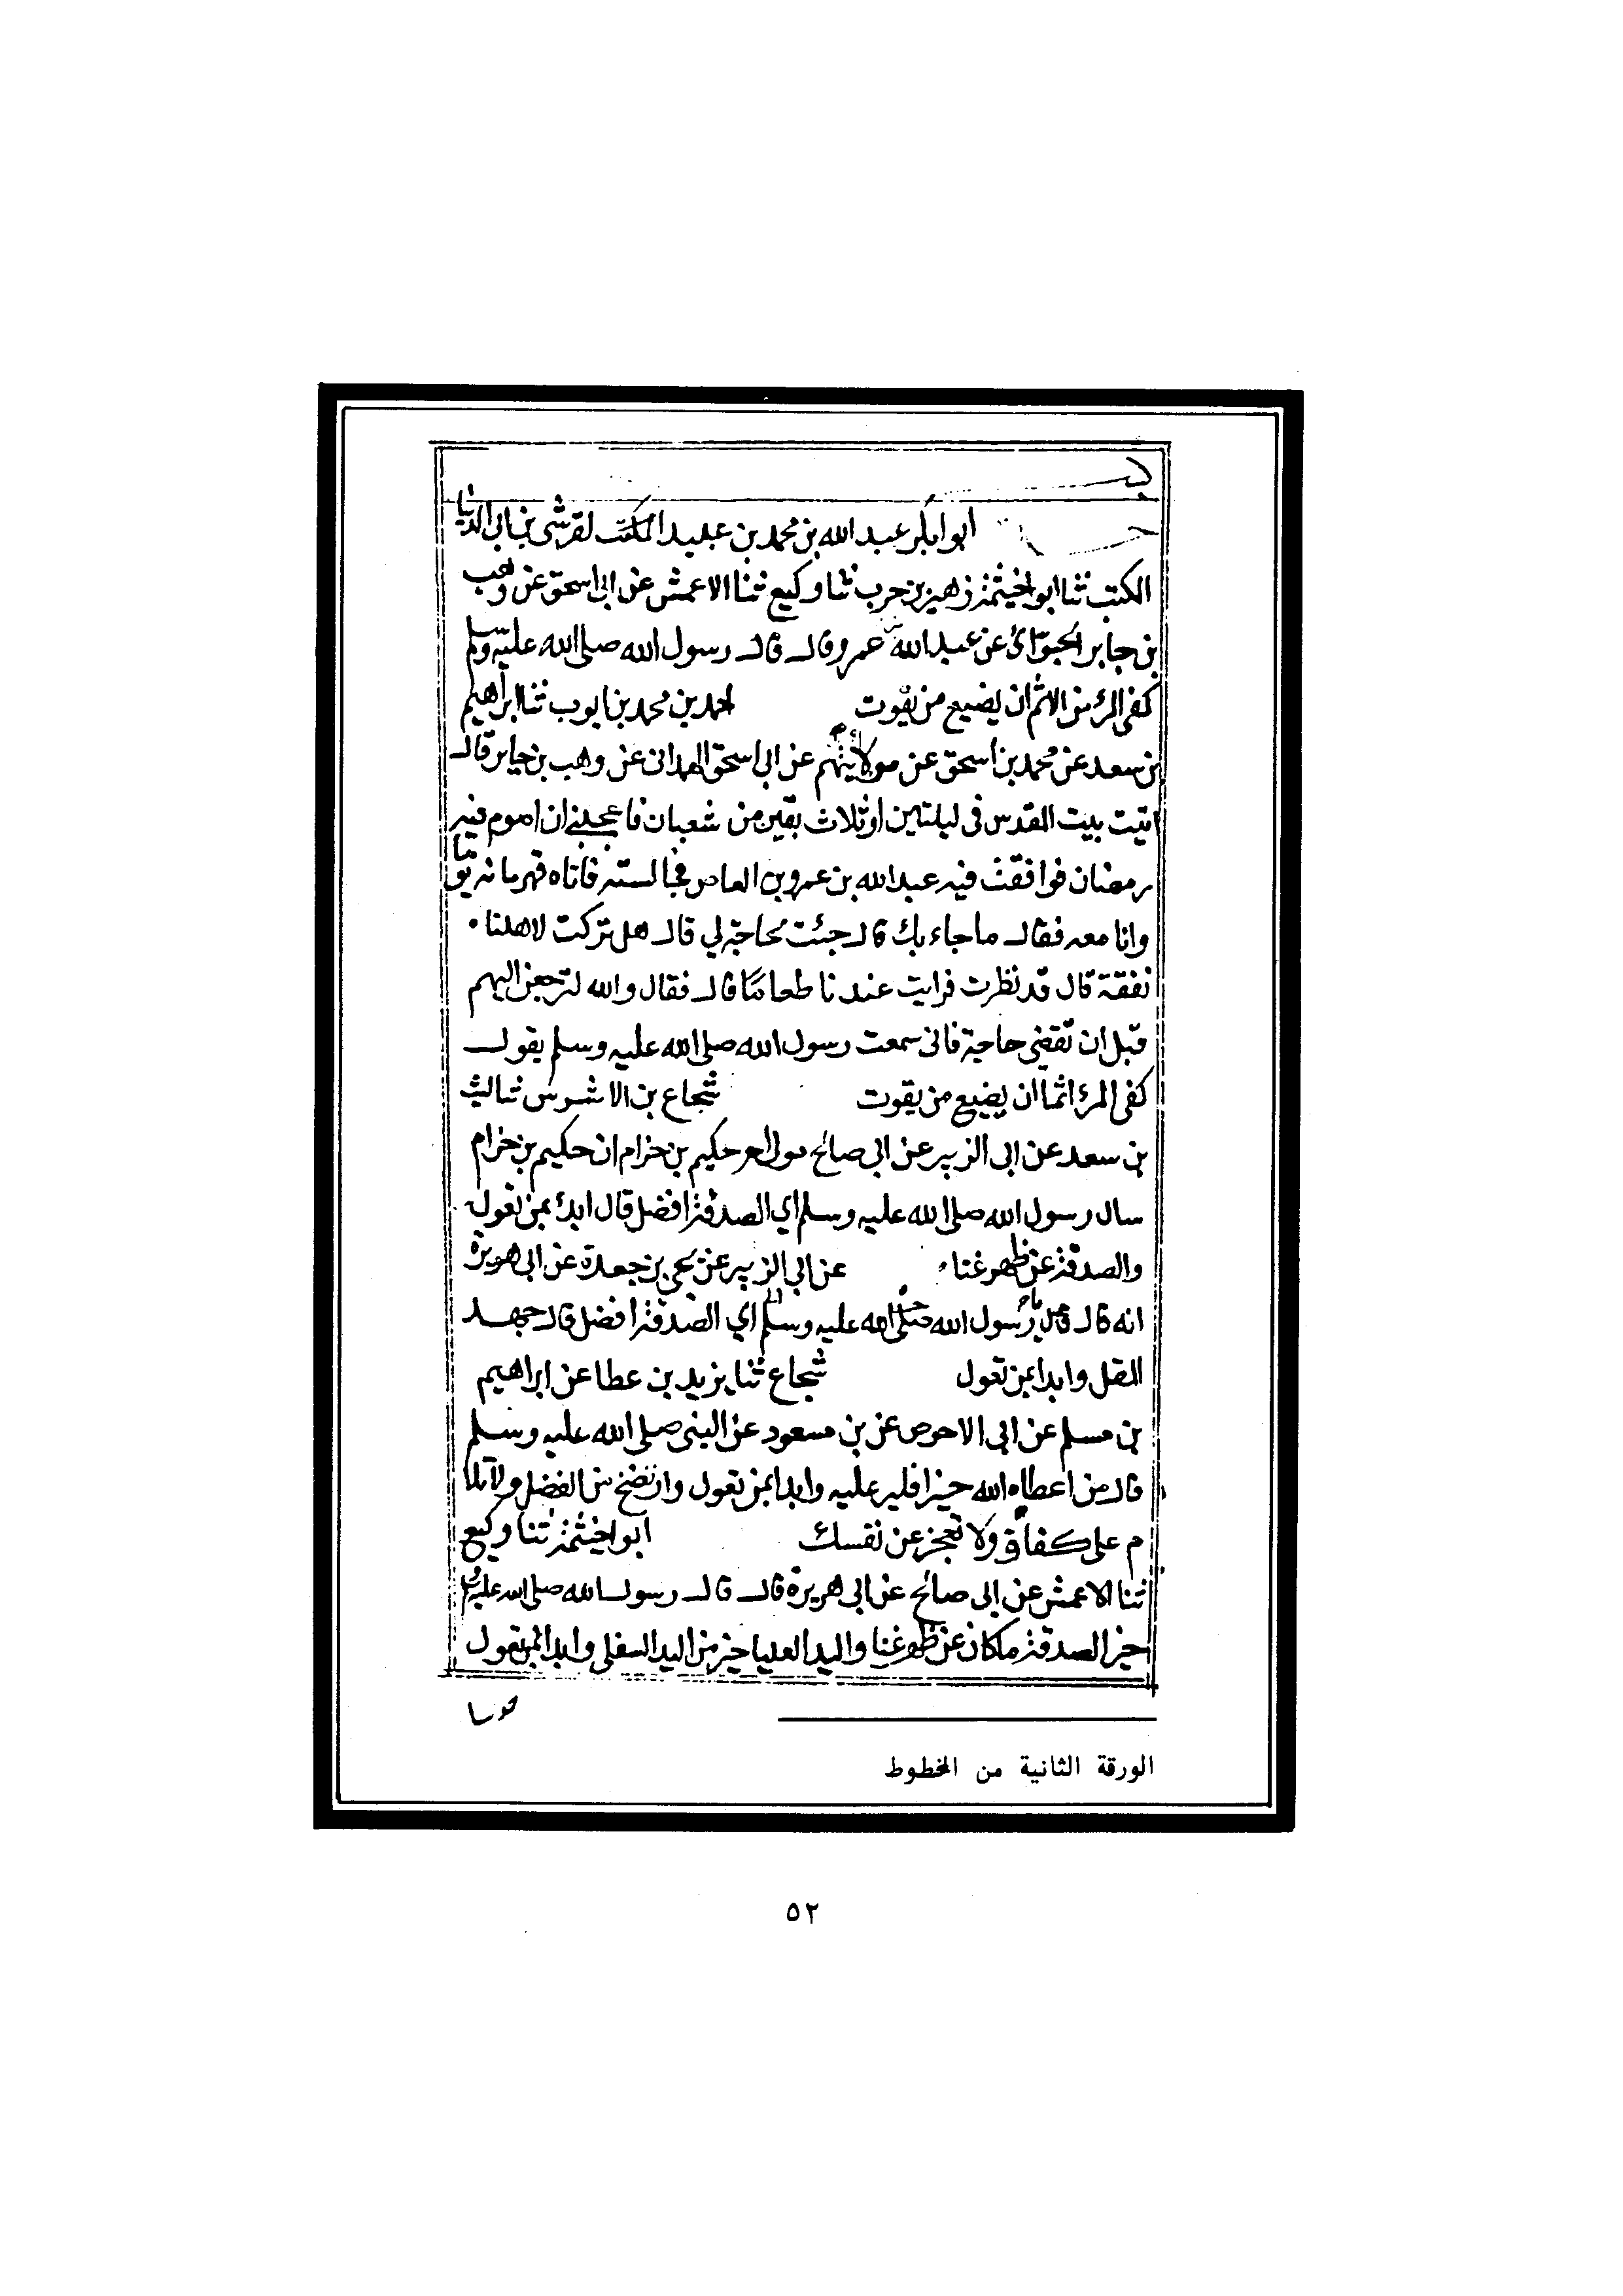 ابوابكر عبد الله بن محمد بن عبيد المكتب لقرشي بن ابي الدنيا
الكتب ثنا ابو اخيثمة زهير بن حرب ثنا وكيع ثنا الاعمش عن ابى اسحق عن وهب
بن جابر عن عبد الله عمرو قال قال رسول الله صلى الله عليه وسلم
كفى المرء من الاثم ان يضيع من يقوت احمد بن محمد بن ايوب ثنا ابراهيم
بن سعد عن محمد بن اسحق عن عن ابى اسحق الهمدانى عن وهب بن جابر قال
اتيت بيت المقدس فى ليلتين او ثلاث بقين من شعبان فاعجبنى ان اصوم فيه
رمضان فوافقت فيه عبد الله بن عمرو بن العاص فجالسته فاتاه قهرمانه يوما
وانا معه فقال ما جاء بك قال جئت لحاجة لي قال هل تركت لاهلنا
نفقة قال قد نظرت فرايت عندنا طعاما قال فقال والله لترجعن اليهم
قبل ان تقضي حاجة فانى سمعت رسول الله صلى الله عليه وسلم يقول
كفى المرء اثما ان يضيع من يقوت شجاع بن الاشرس ثنا ليث
بن سعد عن ابى الزبير عن ابى صالح حكيم بن حزام ان حكيم بن حزام
سال رسول الله صلى الله عليه وسلم اي الصدقة افضل قال ابدئ بمن تعول
والصدقة عن ظهر غناء عن ابي الزبير عن يحيى بن جعدة عن ابى هريرة
انه قال قال يا رسول الله صلى الله عليه وسلم اي الصدقة افضل قال جهد
المقل وابدا بمن تعول شجاع ثنا يزيد بن عطا عن ابراهيم
بن مسلم عن ابى الاحوص عن بن مسعود عن النبى صلى الله عليه وسلم
قال من اعطاه الله خيرا فلير عليه وابدا بمن تعول وارتضخ من الفضل ولا تلا
م على كفاف ولا تعجز عن نفسك ابو اخيثمة ثنا وكيع
ثنا الاعمش عن ابى صالح عن ابى هريرة قال قال رسول الله صلى الله عليه وسلم
خير الصدقة ماكان عن ظهر غنا واليد العليا خير من اليد السفلى وابدا بمن تعول
الورقة الثانية من المخطوط
٥٢